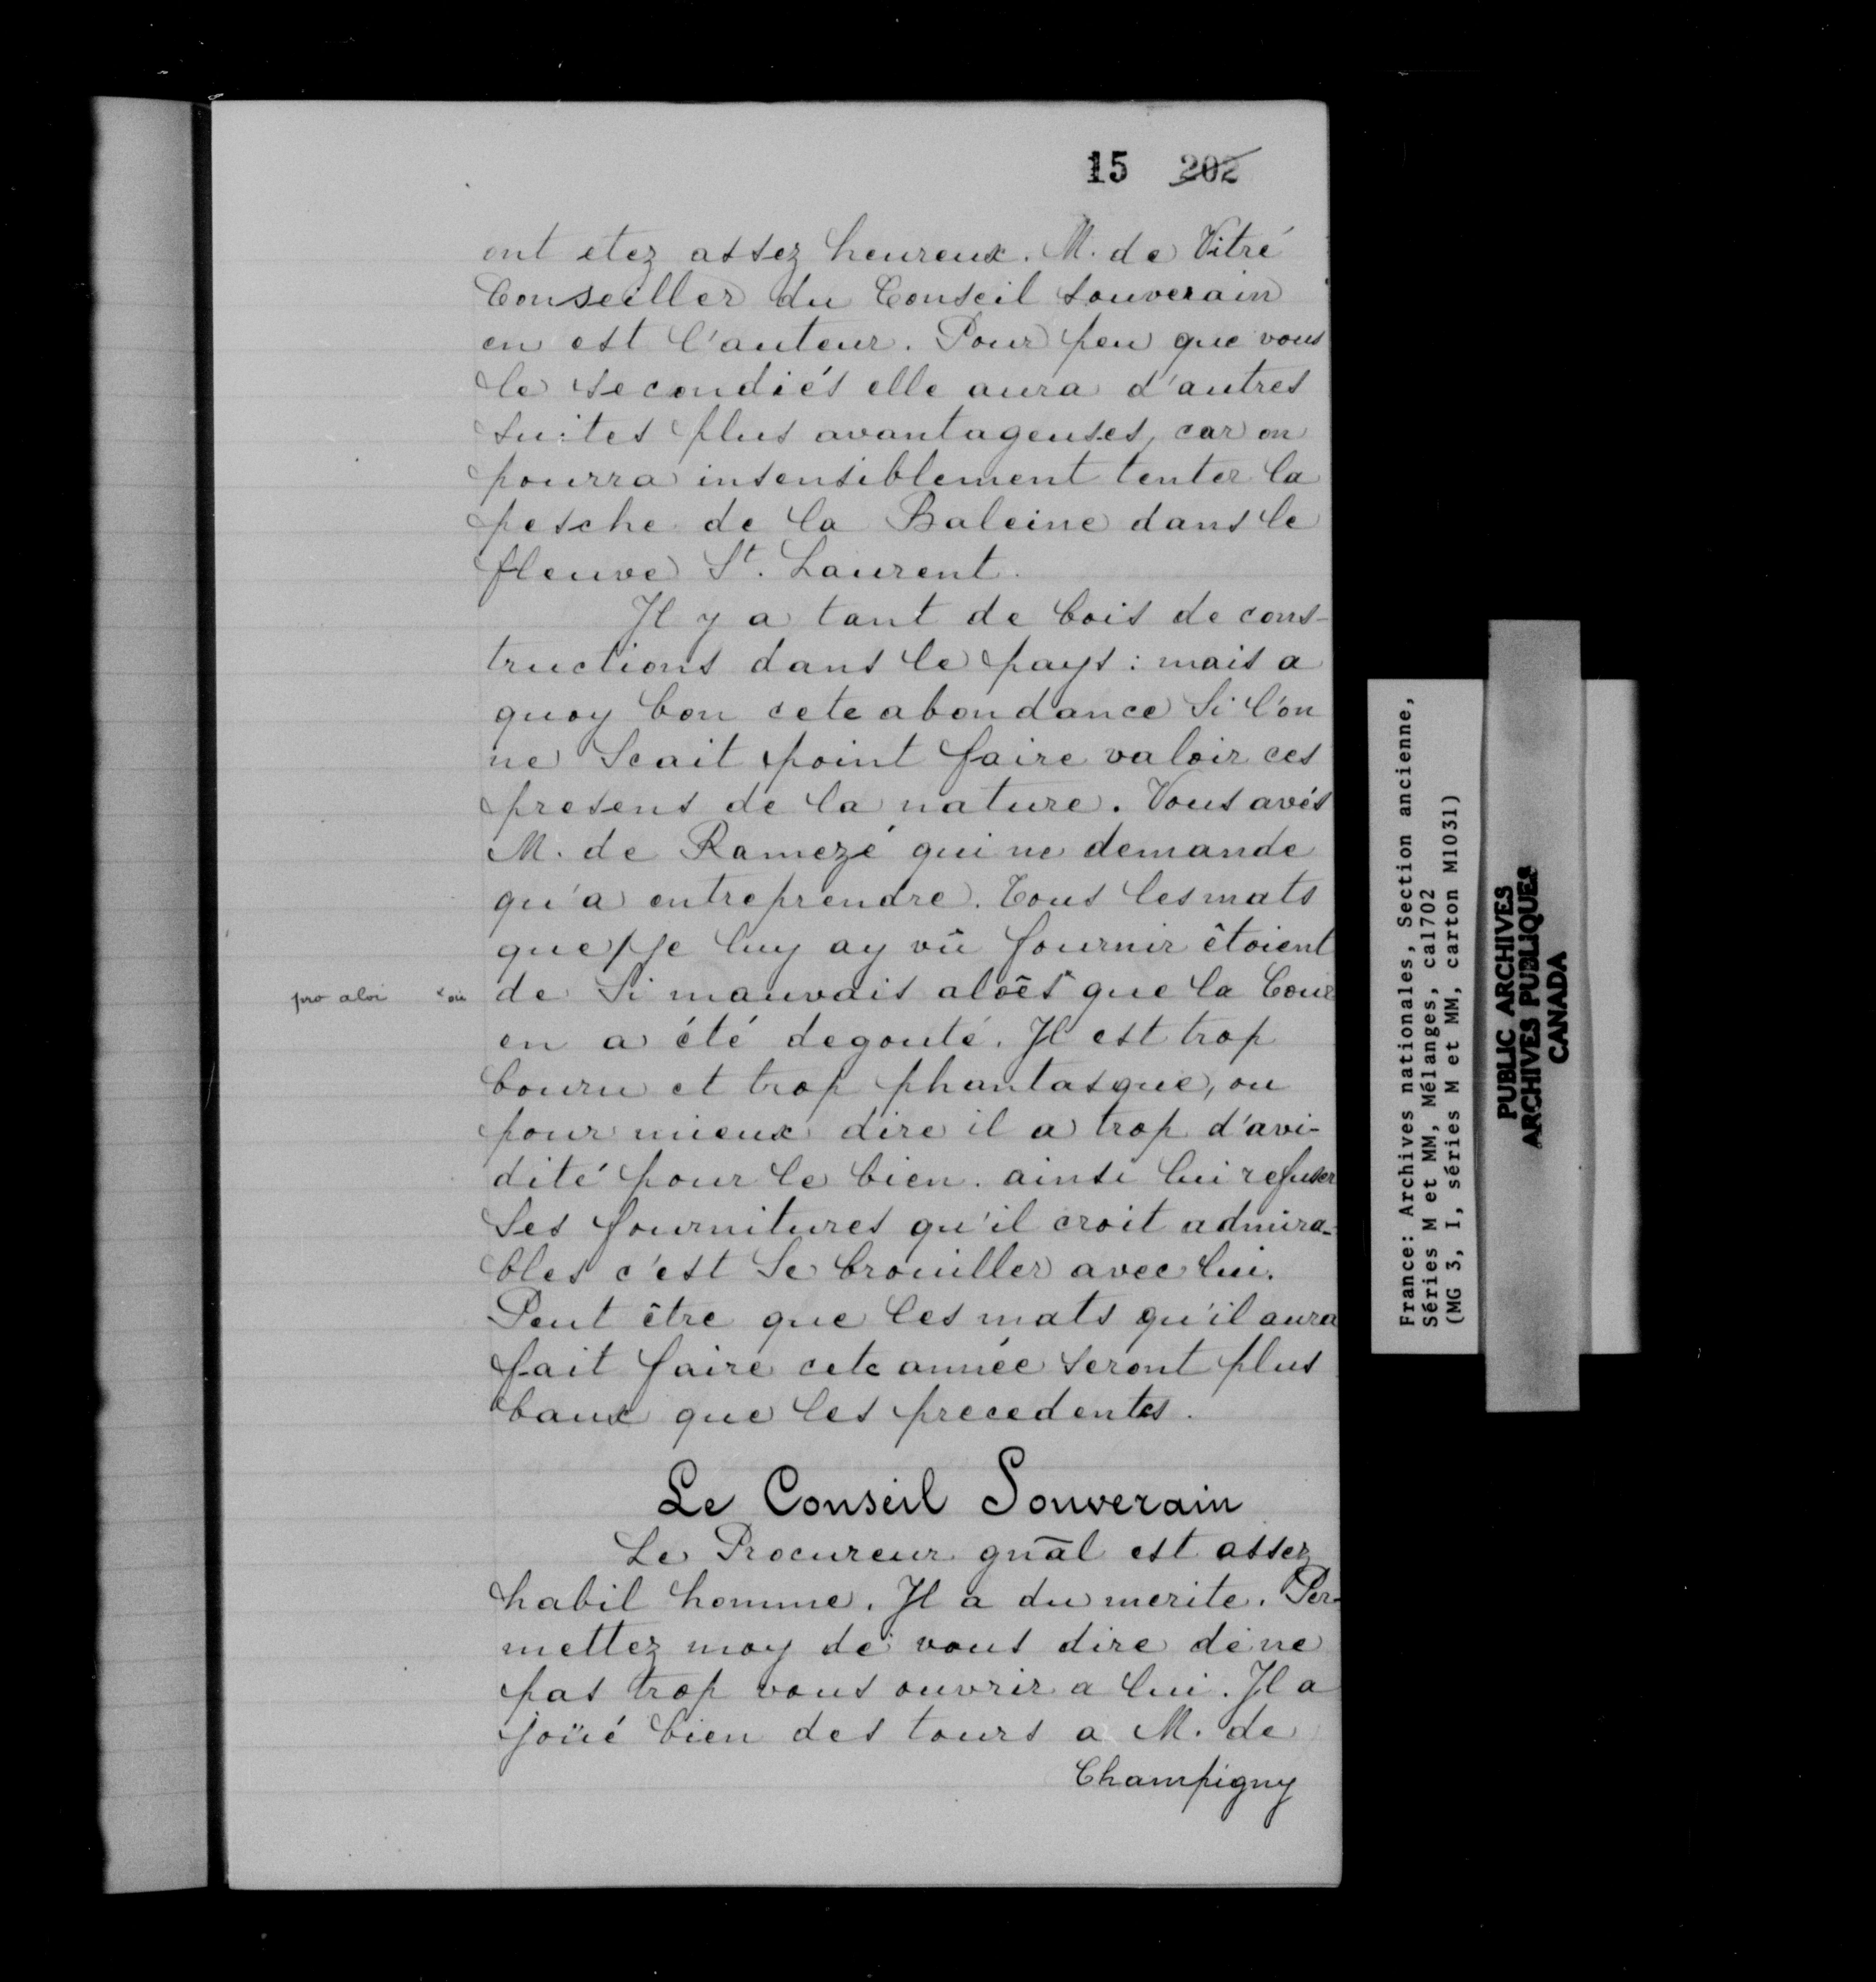 15 202
ont etez assez heureux. M. de Vitré
Conseiller du Conseil souverain
en est l'auteur. Pour peu que vous
le secondiés elle aura d'autres
suites plus avantageuses, car on
pourra insensiblement tenter la
pesche de la Baleine dans le
fleuve St. Laurent.
Il y a tant de bois de cons-
tructions dans le pays : mais a
quoy bon cete abondance Si l'on
ne Scait point faire valoir ces
presens de la nature. Vous avés
M. de Ramezé qui ne demande
qu'a entreprendre. Tous les mats
que je luy ay vû fournir êtoient
pro aloi x oi de Si mauvais aloês x que la Cour
en a été degouté. Il est trop
bouru et trop phantasque, ou
pour mieux dire il a trop d'avi-
dité pour le bien. ainsi lui refuser
Ses fournitures qu'il croit admira-
bles c'est Se brouiller avec lui.
Peut être que les mats qu'il aura
fait faire cete année seront plus
baux que les precedentes.
Le Conseil Souverain
Le Procureur gn̄al est assez
habil homme. Il a du merite. Per-
mettez moy de vous dire de ne
pas trop vous ouvrir a lui. Il a
joüé bien des tours a M. de
Champigny
France: Archives nationales, Section ancienne,
Séries M et MM, Mélanges, ca1702
(MG 3, I, séries M et MM, carton M1031)
PUBLIC ARCHIVES
ARCHIVES PUBLIQUES
CANADA